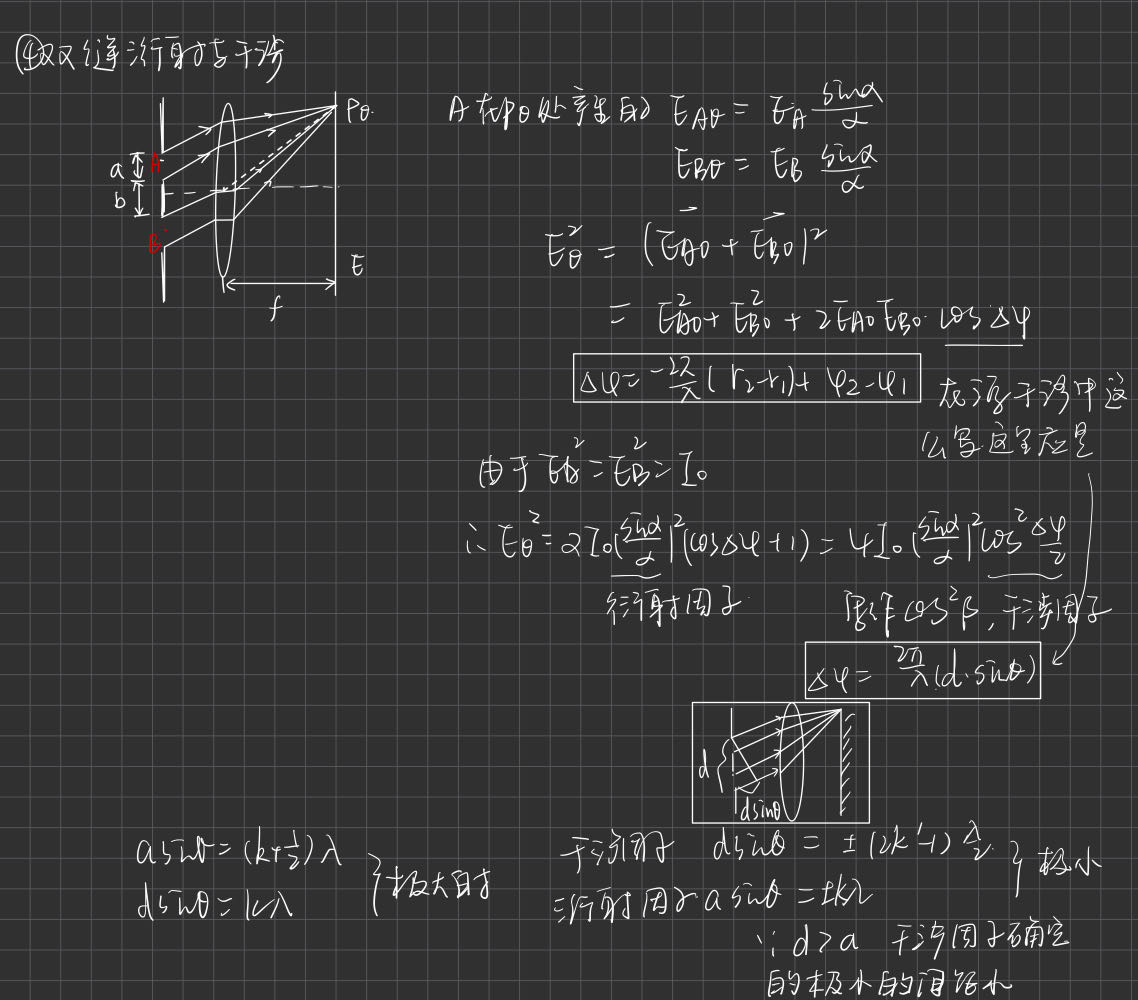 ④双缝衍射与干涉
Pθ
A
a
b
B
E
f
A在Pθ处产生的 E_{Aθ} = E_A \frac{sinα}{α}
E_{Bθ} = E_B \frac{sinα}{α}
E_θ^2 = (\vec{E_{Aθ}} + \vec{E_{Bθ}})^2
= E_{Aθ}^2 + E_{Bθ}^2 + 2E_{Aθ}E_{Bθ}·cosΔφ
Δφ = -\frac{2π}{λ}(r_2-r_1) + φ_2-φ_1
在源干涉中这
么写.这里应是
由于 E_A^2 = E_B^2 = I_0
∴ E_θ^2 = 2I_0(\frac{sinα}{α})^2(cosΔφ+1) = 4I_0(\frac{sinα}{α})^2cos^2\frac{Δφ}{2}
衍射因子
写作cos^2β,干涉因子
Δφ = \frac{2π}{λ}(d·sinθ)
d
dsinθ
asinθ = (k+\frac{1}{2})λ
dsinθ = kλ
}极大自时
干涉因子 dsinθ = ±(2k'-1)\frac{λ}{2}
衍射因子 asinθ = ±kλ
}极小
∵ d>a 干涉因子确定
的极小的间距小